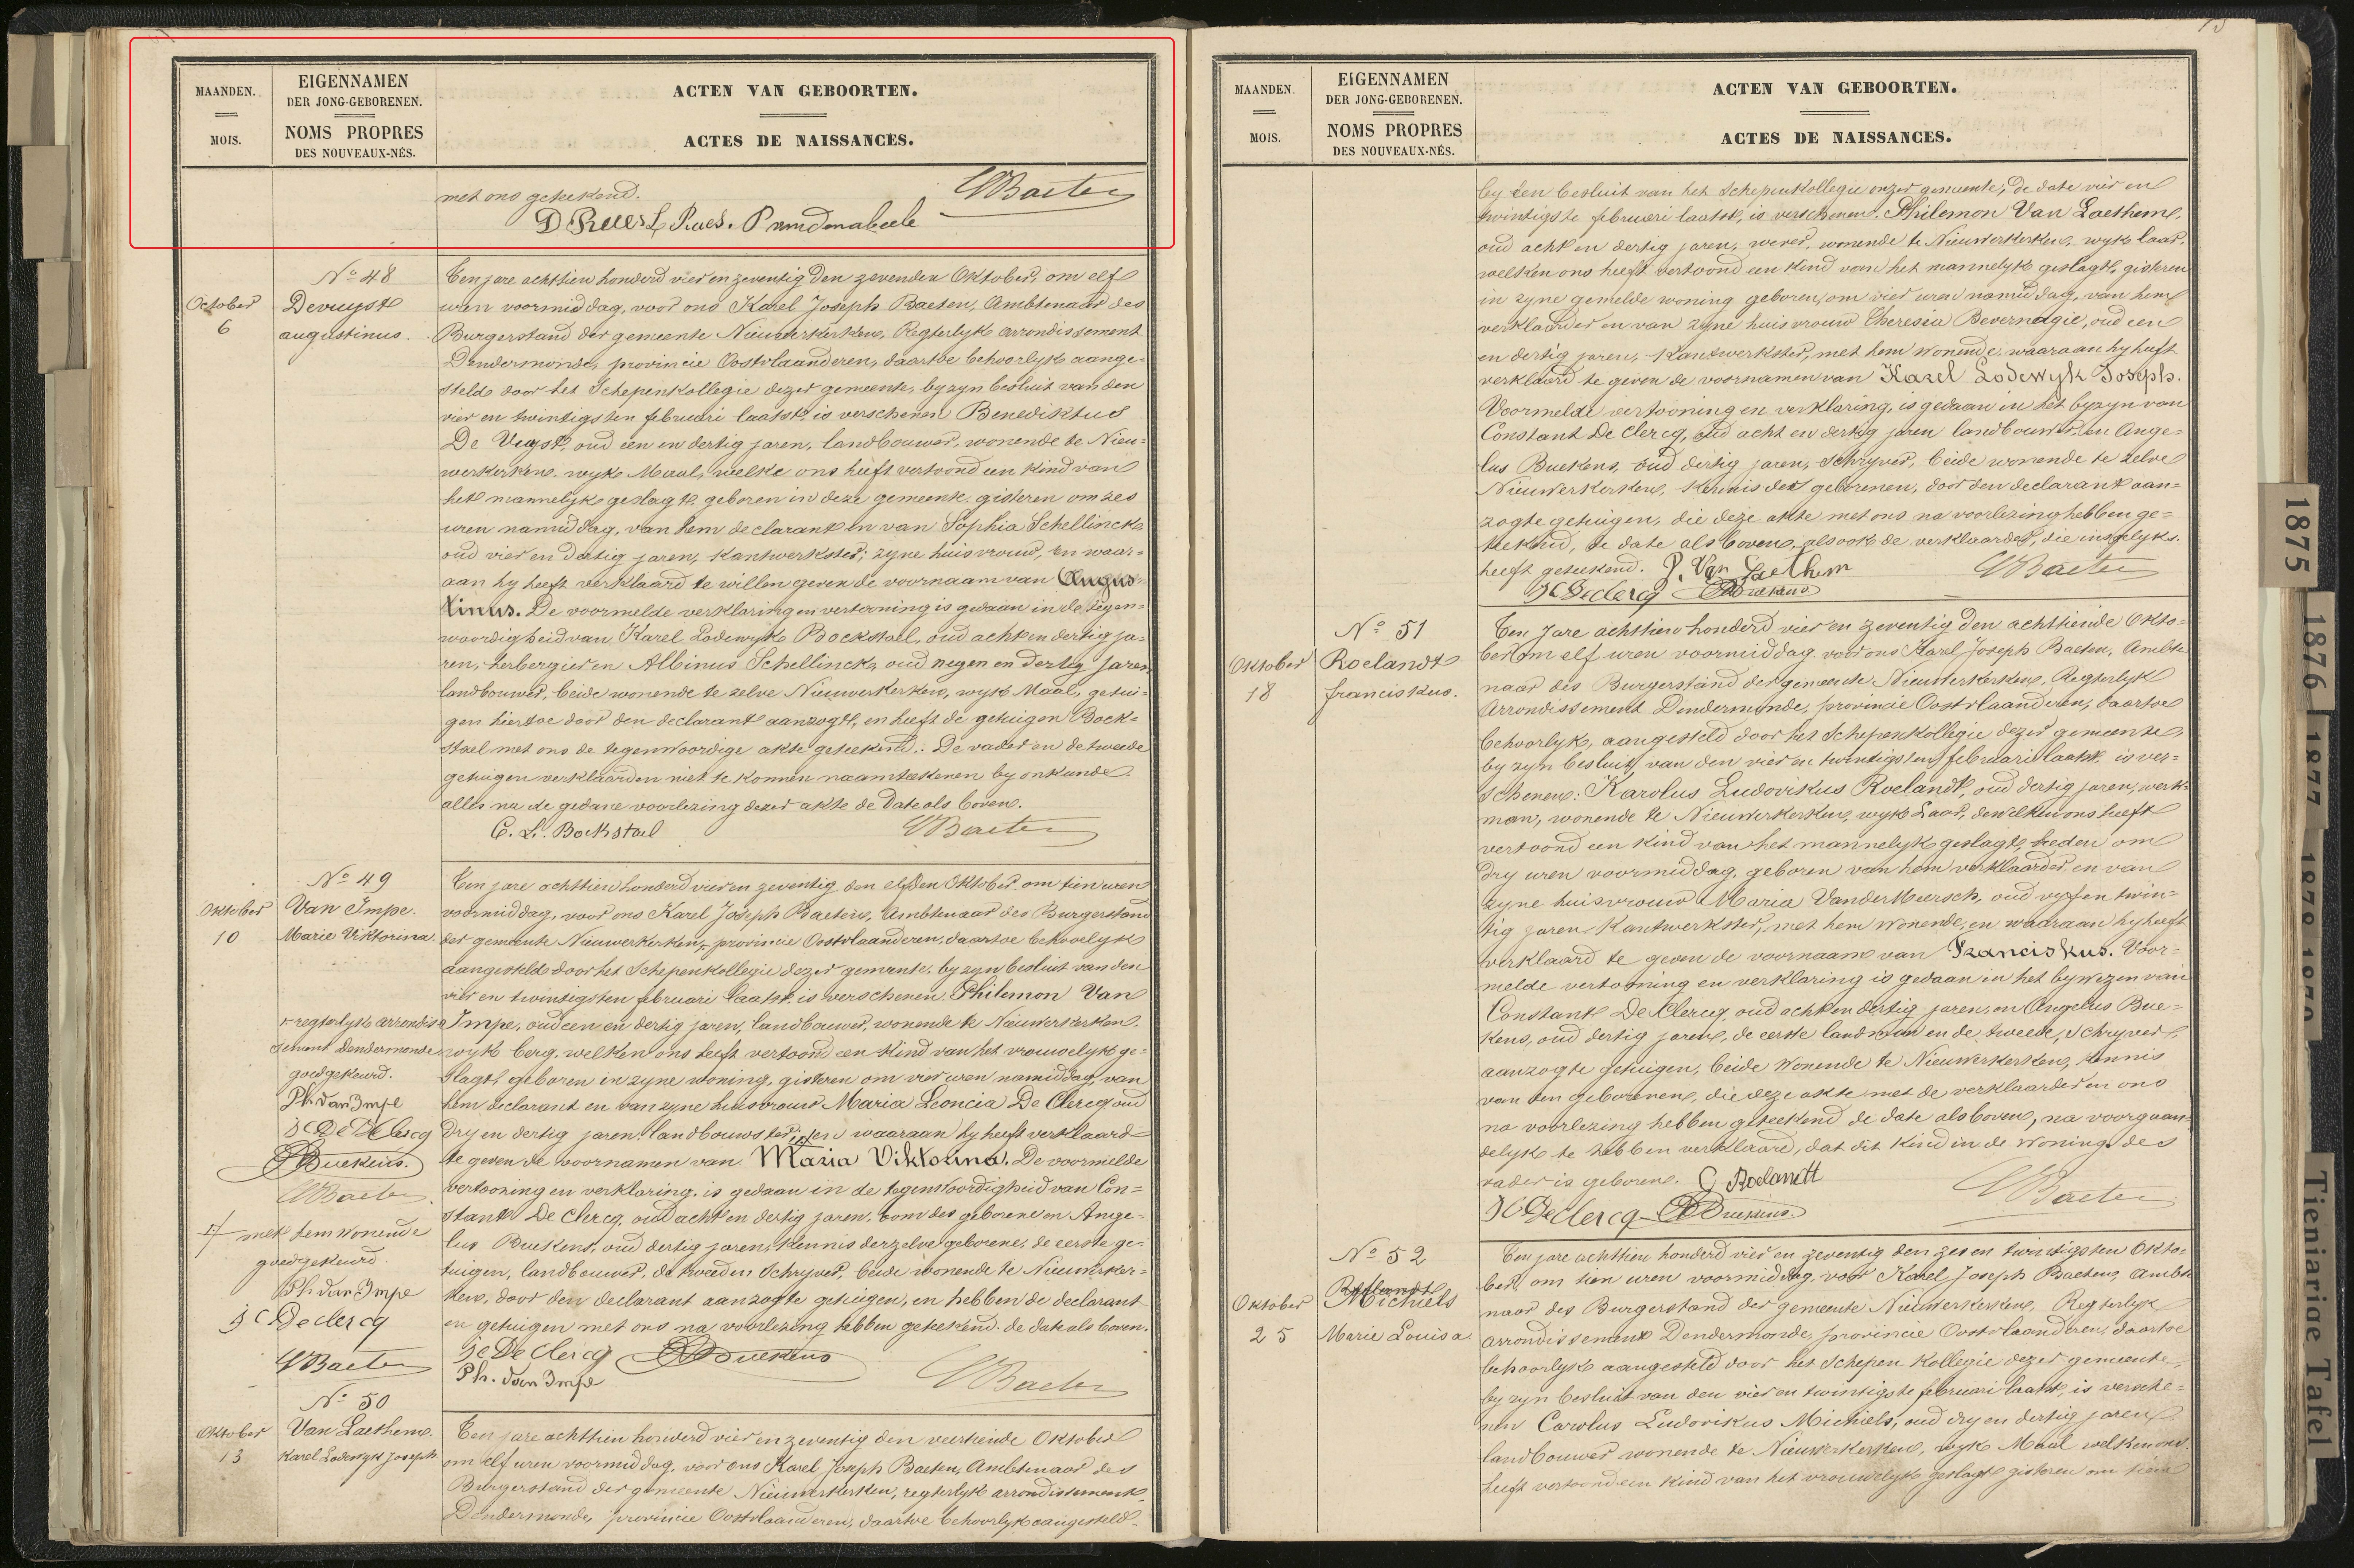 MAANDEN.
MOIS.
EIGENNAMEN
DER JONG-GEBORENEN.
NOMS PROPRES
DES NOUVEAUX-NÉS.
ACTEN VAN GEBOORTEN.
ACTES DE NAISSANCES.
met ons geteekend.
Baeten
No 48
October
6
Devuyst
augustinus.
Ten jare achttien honderd vier en zeventig den zevenden Oktober, om elf
uren voormiddag, voor ons Karel Joseph Baeten, Ambtenaar des
Burgerstand der gemeente Nieuwerkerken, Regterlyk arrondissement
Dendermonde, provincie Oostvlaanderen, daartoe behoorlyk aange=
steld door het Schepenkollegie dezer gemeente, by zyn besluit van den
vier en twintigsten februari laatst, is verschenen Benediktus
De Vuyst, oud een en dertig jaren, landbouwer, wonende te Nieu=
werkerken, wyk Maal, welke ons heeft vertoond een kind van
het mannelyk geslagt, geboren in deze gemeente, gisteren om zes
uren namiddag, van hem declarant en van Sophia Schellinck
oud vier en dertig jaren, kantwerkster, zyne huisvrouw, en waar=
aan hy heeft verklaard te willen geven de voornaam van Augus=
tinus. De voormelde verklaring en vertooning is gedaan in de tegen=
woordigheid van Karel Lodewyk Bockstael, oud acht en dertig ja=
ren, herbergier en Albinus Schellinck, oud negen en dertig jaren
landbouwer, beide wonende te zelve Nieuwerkerken, wyk Maal, getui=
gen hiertoe door den declarant aanzogt, en heeft de getuigen Bock=
stael met ons de tegenwoordige akte geteekend. De vader en de tweede
getuigen verklaarden niet te konnen naamteekenen by onkunde
alles na de gedane voorlezing dezer akte de date als boven.
C. L. Bockstael
Baeten
No 49
Oktober
10
Van Impe.
Marie Viktorina.
Ten jare achttien honderd vier en zeventig den elfden Oktober om tien uren
voormiddag, voor ons Karel Joseph Baeten, Ambtenaar des Burgerstand
der gemeente Nieuwerkerken, provincie Oostvlaanderen, daartoe behoorlyk
aangesteld door het Schepenkollegie dezer gemeente, by zyn besluit van den
vier en twintigsten februari laatst is verschenen Philemon Van
Impe, oud een en dertig jaren, landbouwer, wonende te Nieuwerkerken.
wyk berg, welken ons heeft vertoond een kind van het vrouwelyk ge=
slagt, geboren in zyne woning, gisteren om vier uren namiddag, van
hem declarant en van zyne huisvrouw Maria Leoncia De Clercq oud
dry en dertig jaren, landbouwster, en waaraan hy heeft verklaard
te geven de voornamen van Maria Viktorina. De voormelde
vertooning en verklaring, is gedaan in de tegenwoordigheid van Con=
stant De Clercq, oud acht en dertig jaren, oom des geborene en Ange=
lus Buekens, oud dertig jaren, kennis derzelve geborene, de eerste ge=
tuigen, landbouwer, de tweeden Schryver, beide wonende te Nieuwerker=
ken, door den declarant aanzogte getuigen, en hebben de declarant
en getuigen met ons na voorlezing hebben geteekend. de date als boven.
regterlyk arrondis=
sement Dendermonde
goedgekeurd.
Ph. Van Impe
De Clercq
Buekens.
Baeten
met hem wonende
goedgekeurd
Ph. Van Impe
Declercq
Baeten
De Clercq
Buekens
Ph. Van Impe
Baeten
No 50
Oktober
13
Van Laethem.
Karel Lodewyk Joseph
Ten jare achttien honderd vier en zeventig den veertiende Oktober
om elf uren voormiddag, voor ons Karel Joseph Baeten, Ambtenaar des
Burgerstand der gemeente Nieuwerkerken, regterlyk arrondissement
Dendermonde, provincie Oostvlaanderen, daartoe behoorlyk aangesteld
MAANDEN.
MOIS.
EIGENNAMEN
DER JONG-GEBORENEN.
NOMS PROPRES
DES NOUVEAUX-NÉS.
ACTEN VAN GEBOORTEN.
ACTES DE NAISSANCES.
by een besluit van het Schepenkollegie onzer gemeente, de date vier en
twintigste februari laatst, is verschenen, Philemon Van Laethem,
oud acht en dertig jaren, wever, wonende te Nieuwerkerken, wyk laar,
welken ons heeft vertoond een kind van het mannelyk geslagt, gisteren
in zyne gemelde woning geboren, om vier uren namiddag, van hem
verklaarder en van zyne huisvrouw Theresia Bevernagie, oud een
en dertig jaren, kantwerkster, met hem wonende, waaraan hy heeft
verklaard te geven de voornamen van Karel Lodewyk Joseph.
Voormelde vertooning en verklaring, is gedaan in het byzyn van
Constant De Clercq, oud acht en dertig jaren landbouwer, en Ange=
lus Buekens, oud dertig jaren, Schryver, beide wonende te zelve
Nieuwerkerken, kennis der geborenen, door den declarant aan=
zogte getuigen, die deze akte met ons na voorlezing hebben ge=
teekend, de date als boven, alsook de verklaarder, die insgelyks
heeft geteekend. P. Van Laethem
Baeten
Declercq Buekens
No 51
Oktober
18
Roelandt
franciskus.
Ten Jare achttien honderd vier en zeventig den achttiende Okto=
ber om elf uren voormiddag voor ons Karel Joseph Baeten, Ambte
naar des Burgerstand der gemeente Nieuwerkerken, Regterlyk
Arrondissement Dendermonde, provincie Oostvlaanderen, daartoe
behoorlyk, aangesteld door het Schepenkollegie dezer gemeente,
by zyn besluit, van den vier en twintigsten februari laatst, is ver=
schenen: Karolus Ludovikus Roelandt, oud dertig jaren, werk=
man, wonende te Nieuwerkerken, wyk Laar, dewelken ons heeft
vertoond een kind van het mannelyk geslagt, heden om
dry uren voormiddag, geboren van hem verklaarder, en van
zyne huisvrouw Maria VanderMeersch, oud vyf en twin=
tig jaren Kantwerkster, met hem wonende, en waaraan hy heeft
verklaard te geven de voornaam van Franciskus. Voor=
melde vertooning en verklaring is gedaan in het bywezen van
Constant De Clercq, oud acht en dertig jaren, en Angelus Bue=
kens, oud dertig jaren, de eerste landman en de tweede, Schryver
aanzogte getuigen, beide wonende te Nieuwerkerken, kennis
van den geborenen, die deze akte met de verklaarder en ons
na voorlezing hebben geteekend de date als boven, na voorgaan=
delyk te hebben verklaard, dat dit kind in de woning des
vader is geboren. C Roelandt
Baeten
DeClercq Buekens.
No 52
Oktober
25
Michiels
Marie Louisa
Ten jare achttien honderd vier en zeventig den zes en twintigsten Okto=
ber, om tien uren voormiddag, voor Karel Joseph Baeten, ambte
naar des Burgerstand der gemeente Nieuwerkerken, Regterlyk
arrondissement Dendermonde, provincie Oostvlaanderen, daartoe
behoorlyk aangesteld door het Schepen kollegie dezer gemeente,
by zyn besluit van den vier en twintigste februari laatst, is versche=
nen Carolus Ludovikus Michiels, oud dry en dertig jaren
landbouwer wonende te Nieuwerkerken, wyk Maal welken ons
heeft vertoond een kind van het vrouwelyk geslagt gisteren om tien
1875
1876
1877
1878
1879
Tienjarige Tafel